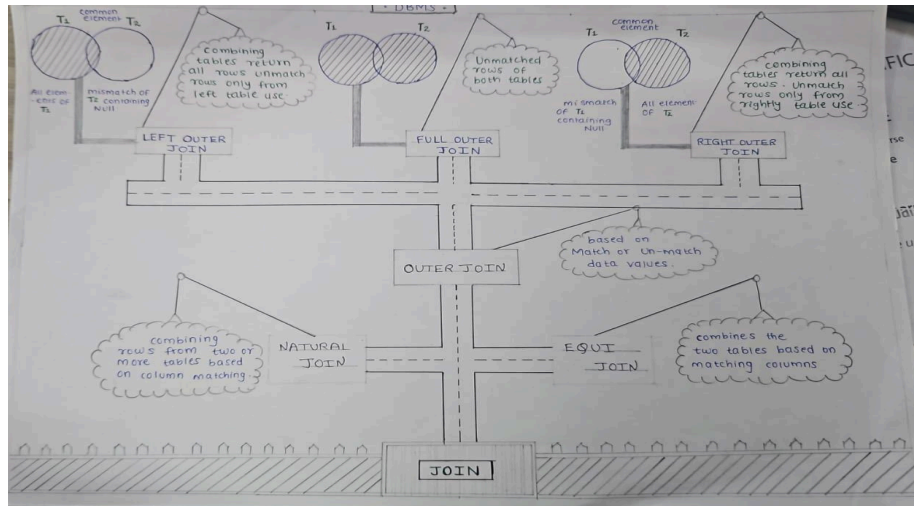 DBMS
T1
common
element
T2
All elem
-ents of
T1
mismatch of
T2 containing
Null
combining
tables return
all rows unmatch
rows only from
left table use.
LEFT OUTER
JOIN
T1
T2
Unmatched
rows of
both tables
FULL OUTER
JOIN
common
element
T1
T2
mismatch
of T1
containing
Null
All element
of T2
combining
tables return all
rows. unmatch
rows only from
rightly table use
RIGHT OUTER
JOIN
based on
Match or Un-match
data values.
OUTER JOIN
combining
rows from two or
more tables based
on column matching.
NATURAL
JOIN
EQUI
JOIN
combines the
two tables based on
matching columns
JOIN